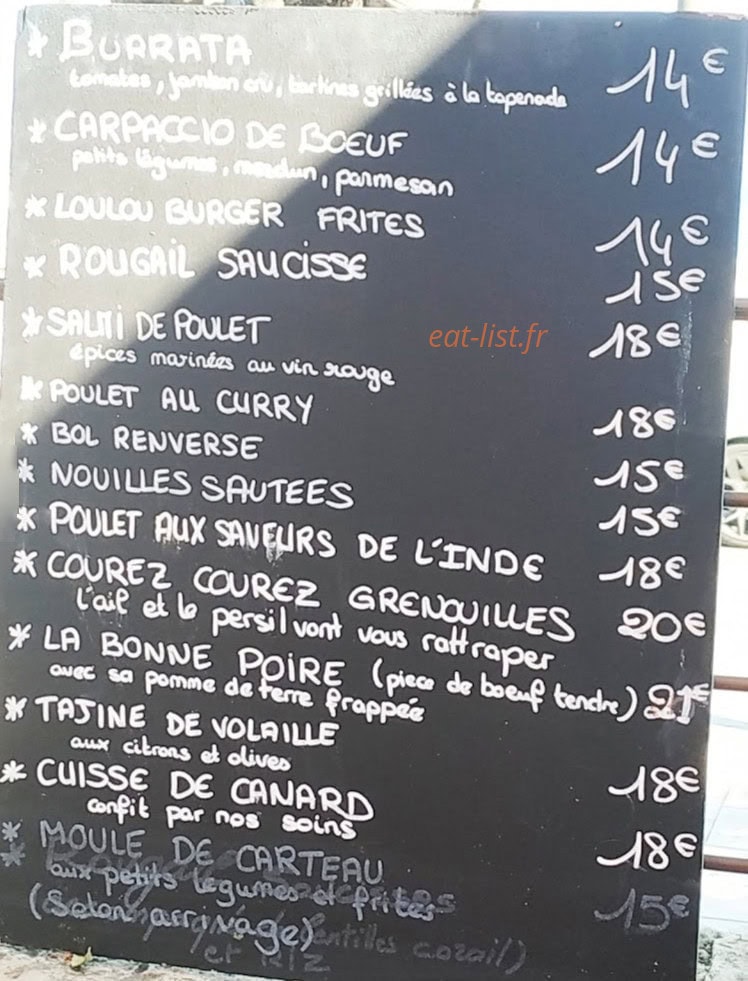 * BURRATA 14€
tomates, jambon cru, tartines grillées à la tapenade
* CARPACCIO DE BOEUF 14€
petits légumes, parmesan
* LOULOU BURGER FRITES 14€
* ROUGAIL SAUCISSE 15€
* SALMI DE POULET 18€
eat-list.fr
épices marinées au vin rouge
* POULET AU CURRY 18€
* BOL RENVERSE 15€
* NOUILLES SAUTEES 15€
* POULET AUX SAVEURS DE L'INDE 18€
* COUREZ COUREZ GRENOUILLES 20€
l'ail et le persil vont vous rattraper
* LA BONNE POIRE (piece de boeuf tendre) 21€
avec sa pomme de terre frappée
* TAJINE DE VOLAILLE 18€
aux citrons et olives
* CUISSE DE CANARD 18€
confit par nos soins
* MOULE DE CARTEAU 15€
*
aux petits légumes et frites
(Selon arrivage)
lentilles corail)
et RIZ